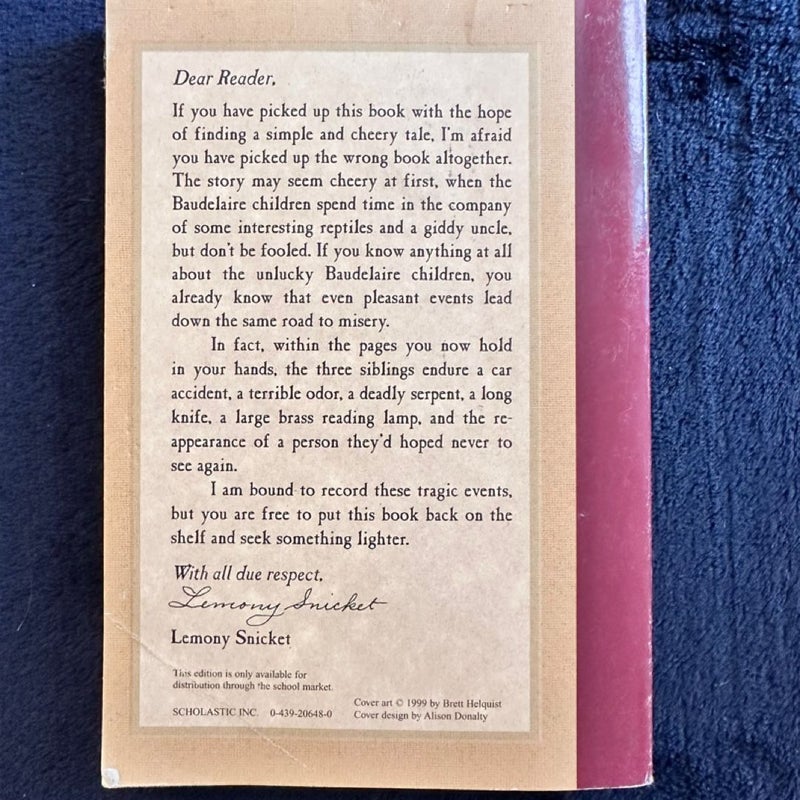 Dear Reader,
If you have picked up this book with the hope
of finding a simple and cheery tale, I'm afraid
you have picked up the wrong book altogether.
The story may seem cheery at first, when the
Baudelaire children spend time in the company
of some interesting reptiles and a giddy uncle,
but don't be fooled. If you know anything at all
about the unlucky Baudelaire children, you
already know that even pleasant events lead
down the same road to misery.
In fact, within the pages you now hold
in your hands, the three siblings endure a car
accident, a terrible odor, a deadly serpent, a long
knife, a large brass reading lamp, and the re-
appearance of a person they'd hoped never to
see again.
I am bound to record these tragic events,
but you are free to put this book back on the
shelf and seek something lighter.
With all due respect,
Lemony Snicket
Lemony Snicket
This edition is only available for
distribution through the school market.
SCHOLASTIC INC. 0-439-20648-0
Cover art © 1999 by Brett Helquist
Cover design by Alison Donalty